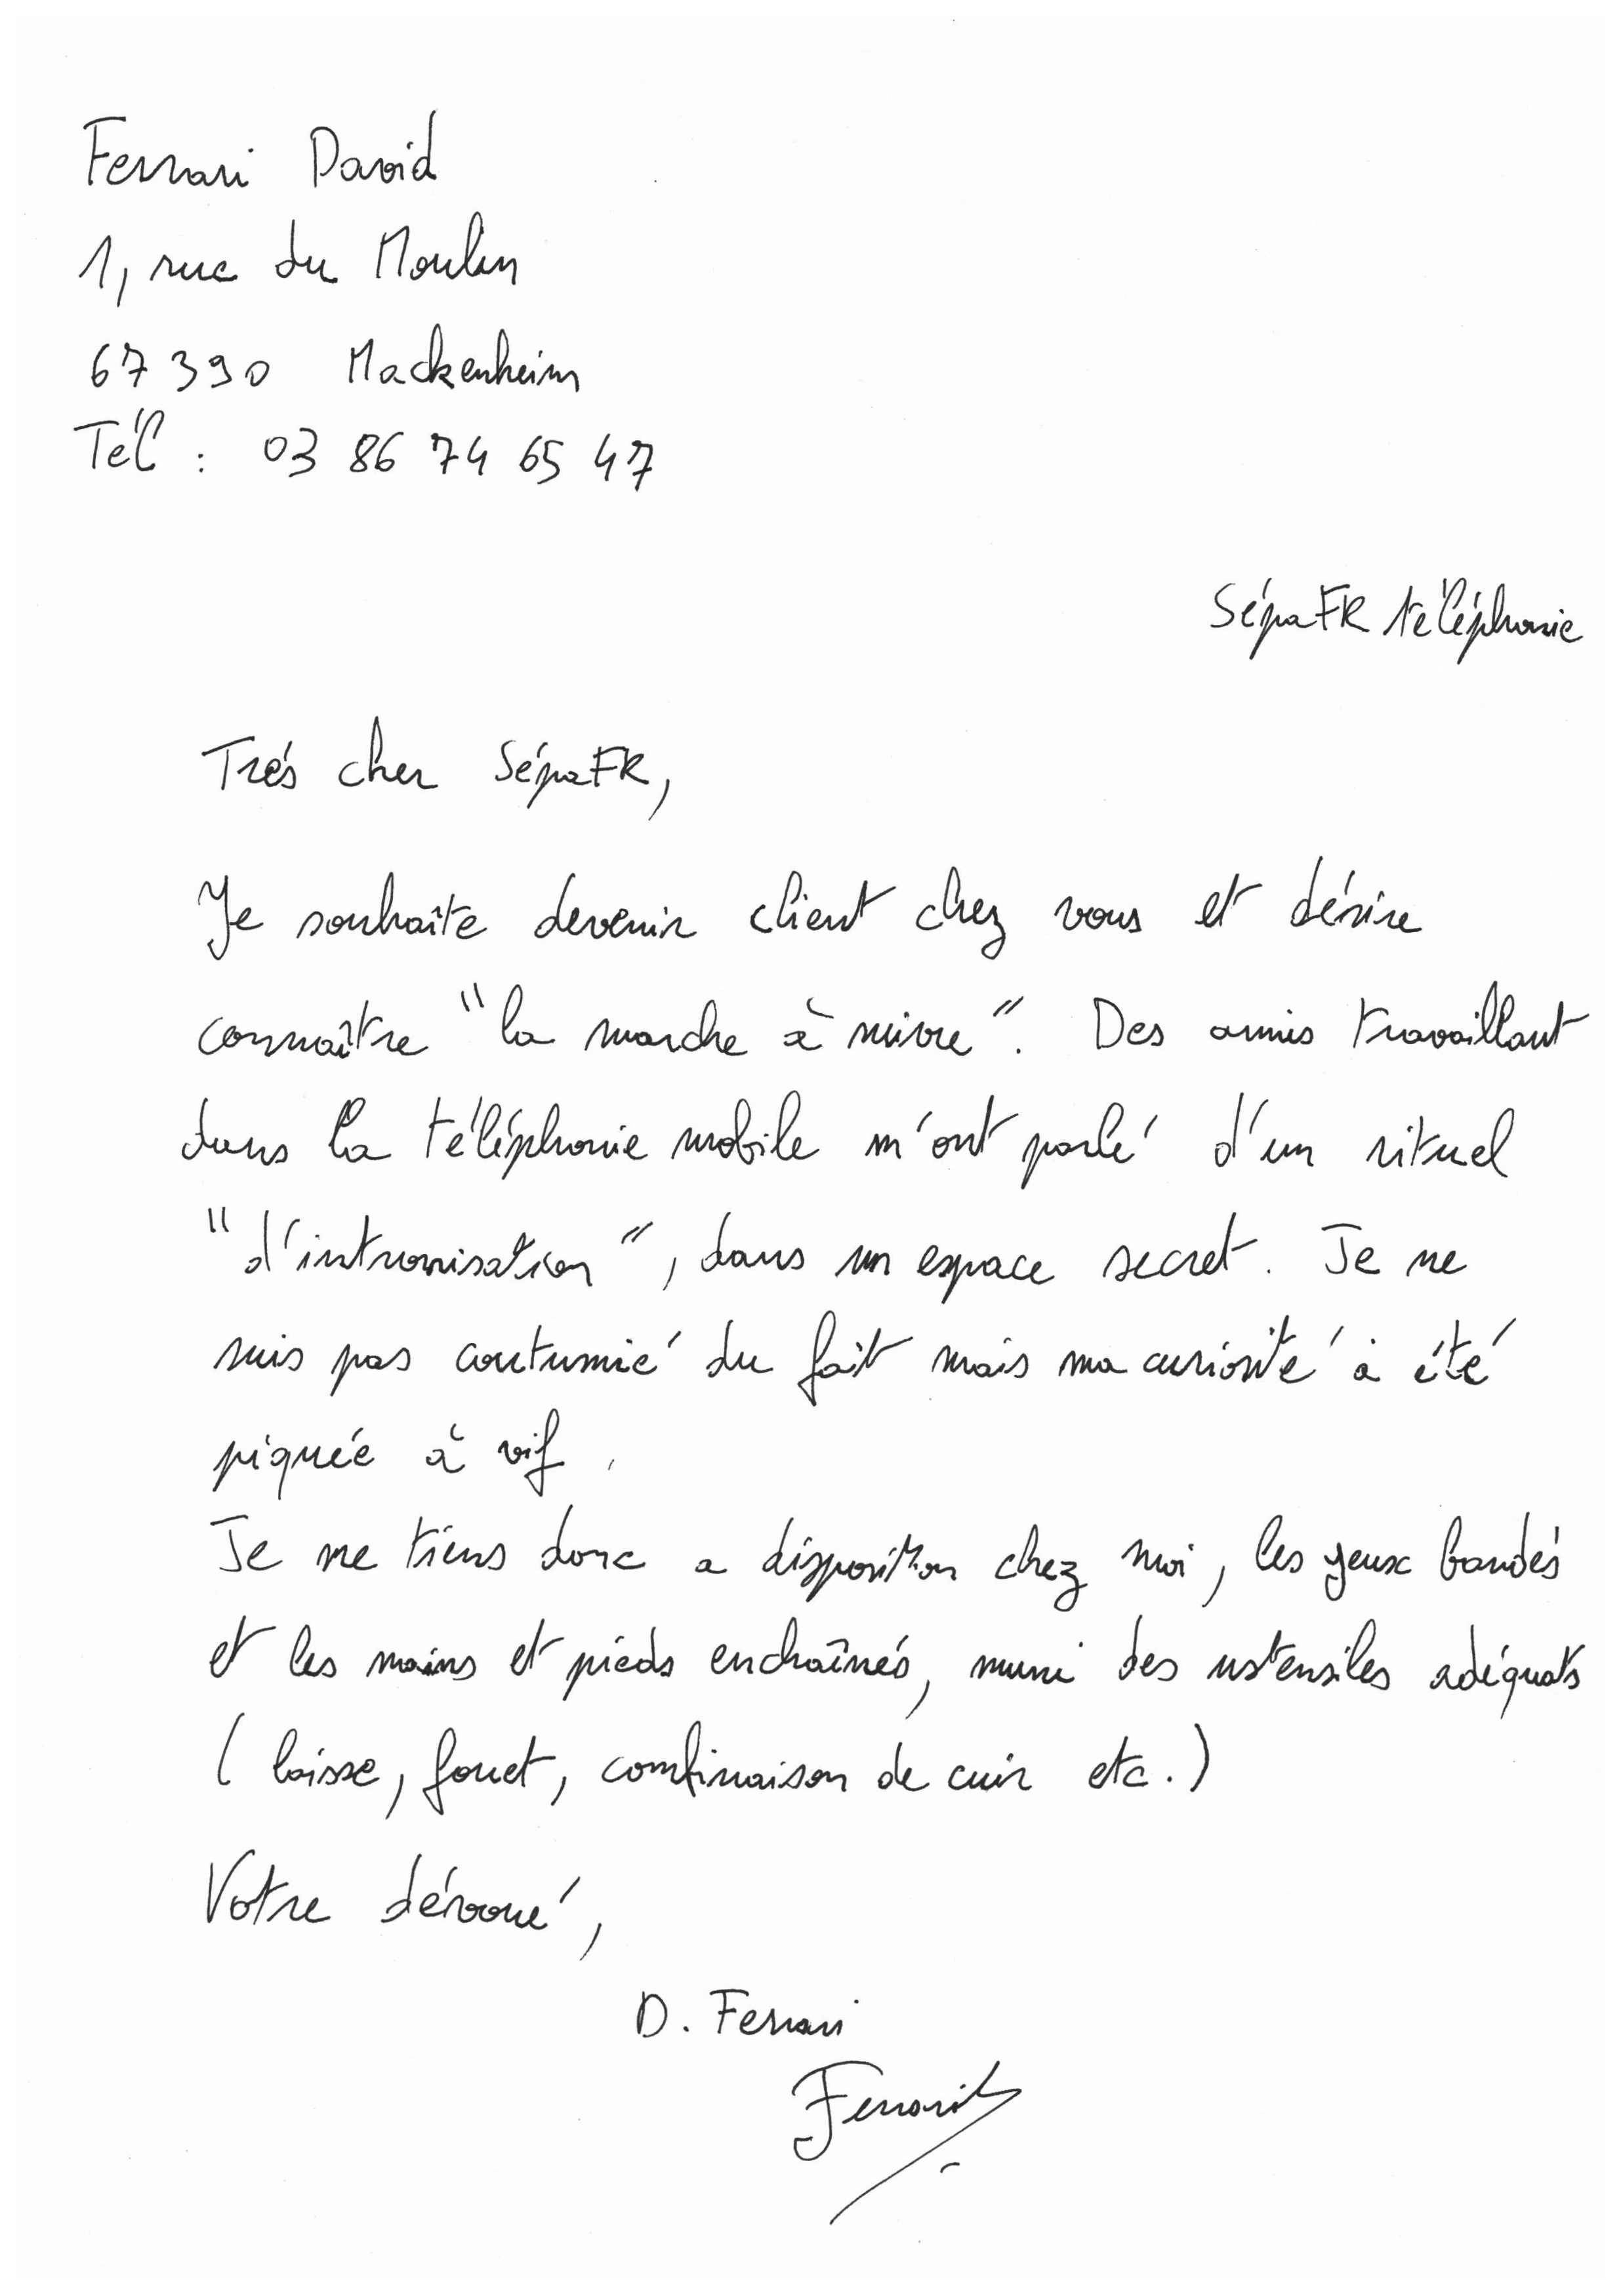 Ferrari David
1, rue du Moulin
67390 Mackenheim
Tél : 03 86 74 65 47
SépaFR téléphonie
Trés cher SépaFR,
Je souhaîte devenir client chez vous et désire
connaître "la marche à suivre". Des amis travaillant
dans la téléphonie mobile m'ont parlé d'un rituel
"d'intronisation", dans un espace secret. Je ne
suis pas coutumié du fait mais ma curiosité à été
piquée à vif.
Je me tiens donc a disposition chez moi, les yeux bandés
et les mains et pieds enchaînés, muni des ustensiles adéquats
(laisse, fouet, combinaison de cuir etc.)
Votre dévoué,
D. Ferrari
Ferrari